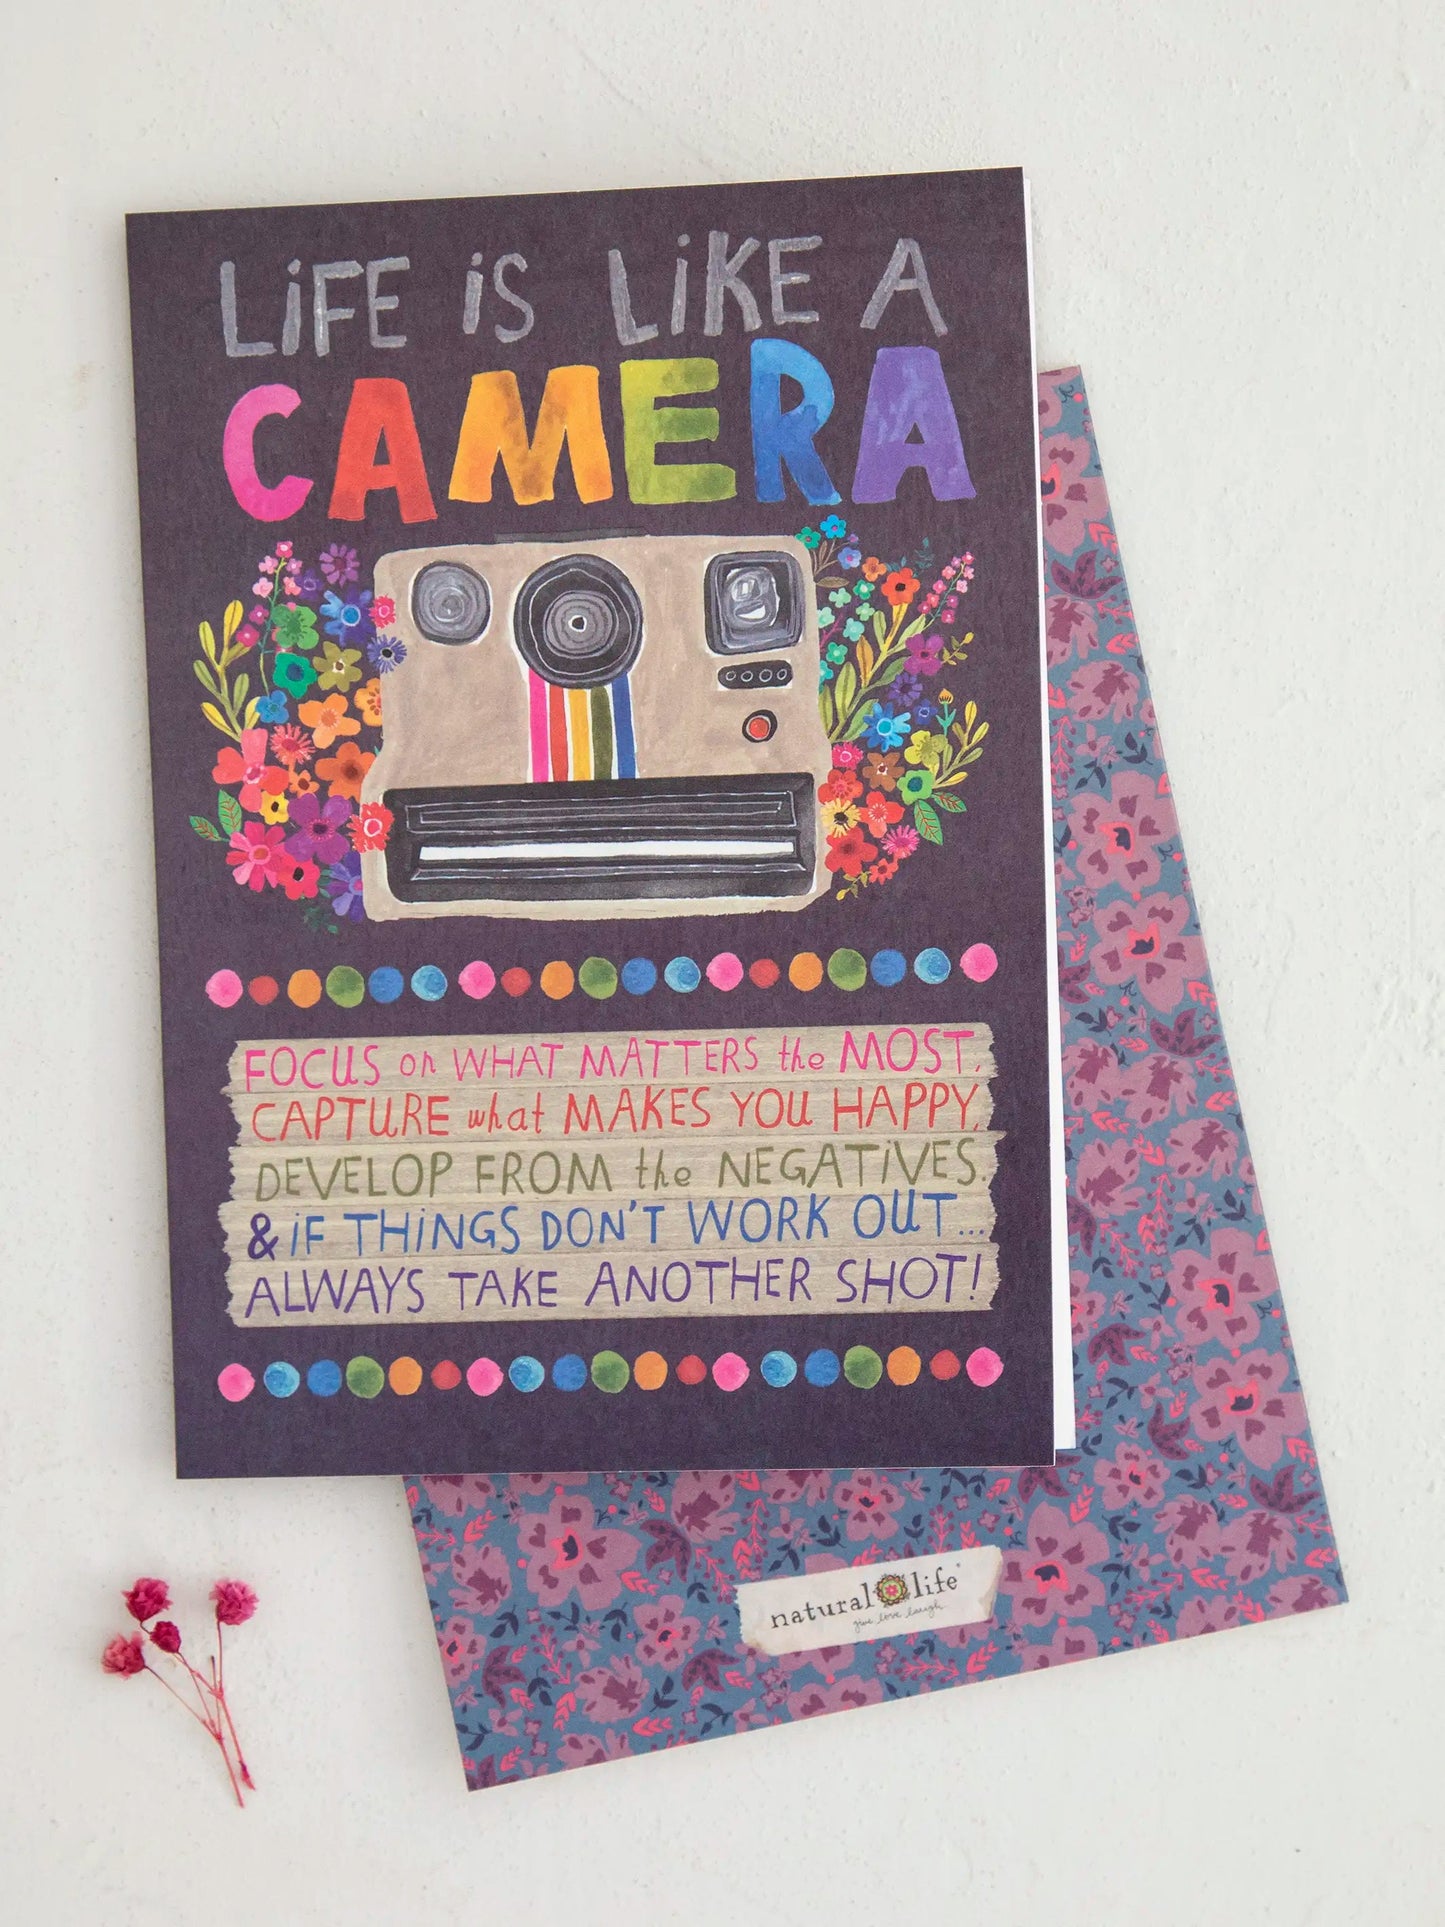 LiFE iS LiKE A
CAMERA
FOCUS on WHAT MATTERS the MOST,
CAPTURE what MAKES YOU HAPPY,
DEVELOP FROM the NEGATiVES.
& iF THiNGS DON'T WORK OUT...
ALWAYS TAKE ANOTHER SHOT!
natural life
give love laugh